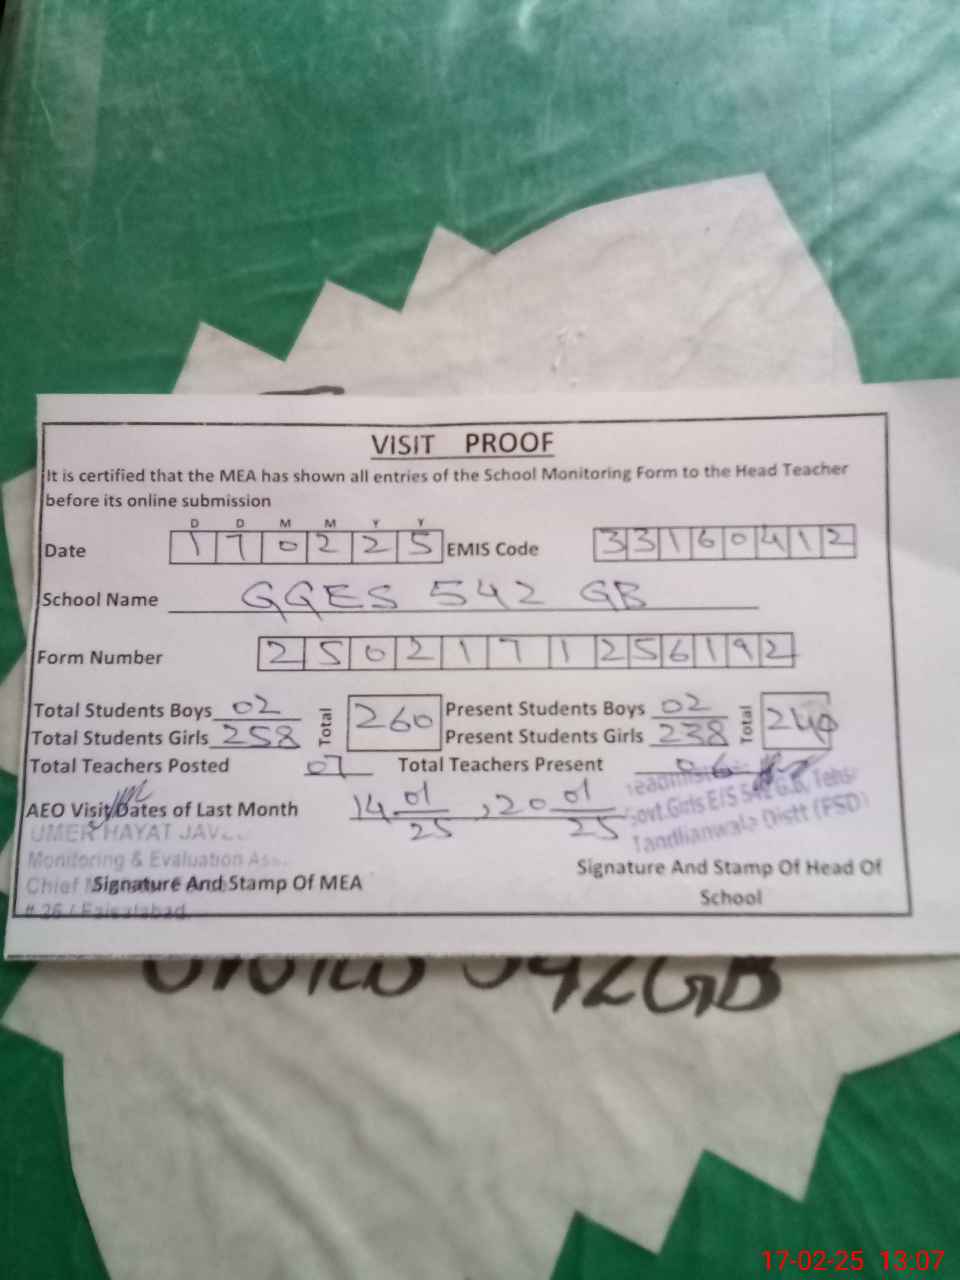 VISIT PROOF
It is certified that the MEA has shown all entries of the School Monitoring Form to the Head Teacher
before its online submission
D D M M Y Y
Date 1 7 0 2 2 5 EMIS Code 3 3 1 6 0 4 1 2
School Name GGES 542 GB
Form Number 2 5 0 2 1 7 1 2 5 6 1 9 2
Total Students Boys 02 Total 260 Present Students Boys 02 Total 240
Total Students Girls 258 Present Students Girls 238
Total Teachers Posted 07 Total Teachers Present 06
AEO Visit Dates of Last Month 14 01/25, 20 01/25
UMER HAYAT
Govt. Girls E/S 542 G.B, Tehs:
Tandlianwala Distt (FSD)
Monitoring & Evaluation
Chief
Signature And Stamp Of MEA
Signature And Stamp Of Head Of
School
# 26 / Faisalabad
542GB
17-02-25 13:07